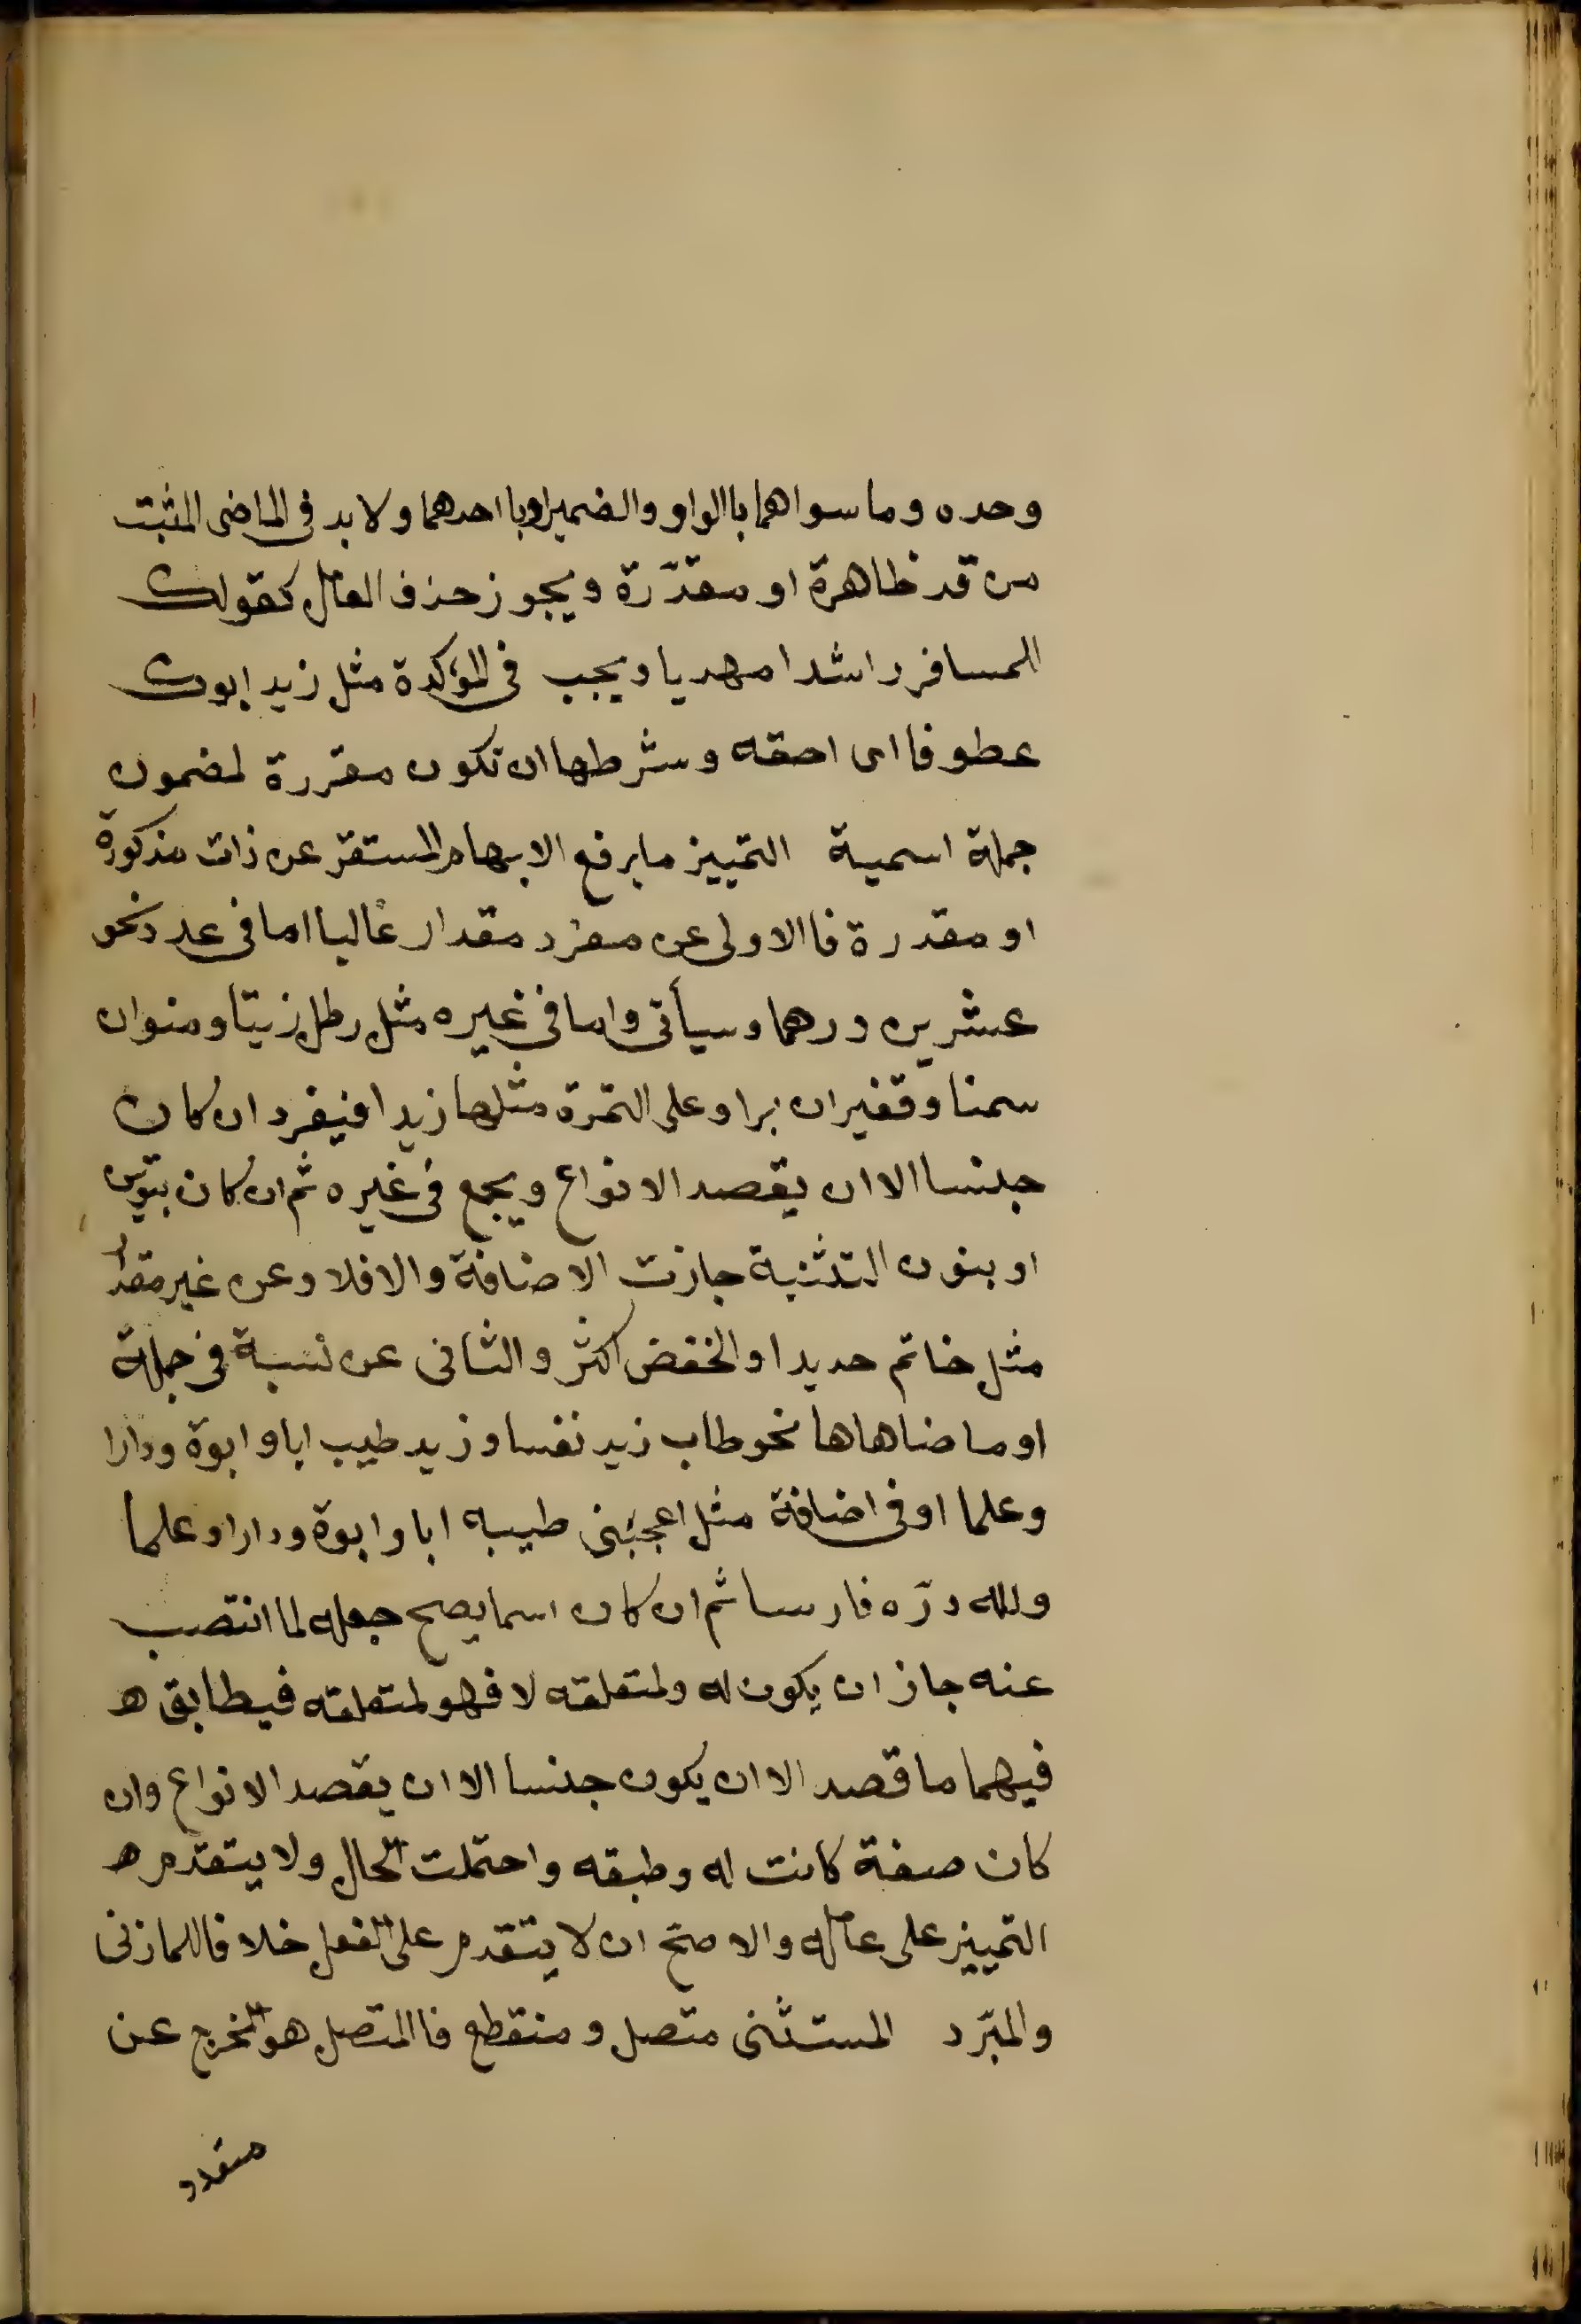 وحده وما سواهما باالواو والضمير اوباا حدهما ولا بد فى الماضى المثبت
من قد ظاهرة او مقدّرة ويجوز حذف العامل كقولك
للمسافر راشدا مهديا ويجب فى المؤكدة مثل زيد ابوك
عطوفا اى احقه وشرطها ان تكون مقررة لمضمون
جملة اسمية التمييز ما يرفع الابهام المستقر عن ذات مذكورة
او مقدرة فاالاولى عن مفرد مقدار غالبا اما فى عدد نحو
عشرين درهما وسيأتى واما فى غيره مثل رطل زيتا ومنوان
سمنا وقفيزان برا وعلى التمرة مثلها زيدا فيفرد ان كان
جنسا الا ان يقصد الانواع ويجمع فى غيره ثم ان كان بتنوين
او بنون التثنية جازت الاضافة والا فلا وعن غير مقدار
مثل خاتم حديدا والخفض اكثر والثانى عن نسبة فى جملة
او ما ضاهاها نحو طاب زيد نفسا وزيد طيب ابا وابوة ودارا
وعلما او فى اضافة مثل اعجبنى طيبه ابا وابوة ودارا وعلما
ولله درّه فارسا ثم ان كان اسما يصح جعله لما انتصب
عنه جاز ان يكون له ولمتعلقه لا فهو لمتعلقه فيطابق ه
فيهما ما قصد الا ان يكون جنسا الا ان يقصد الانواع وان
كان صفة كانت له وطبقه واحتملت الحال ولا يتقدم ه
التمييز على عامله والاصحّ ان لا يتقدم على الفعل خلافا للمازنى
والمبّرد المستثنى متصل ومنقطع فاالمتصل هو المخرج عن
متعدد